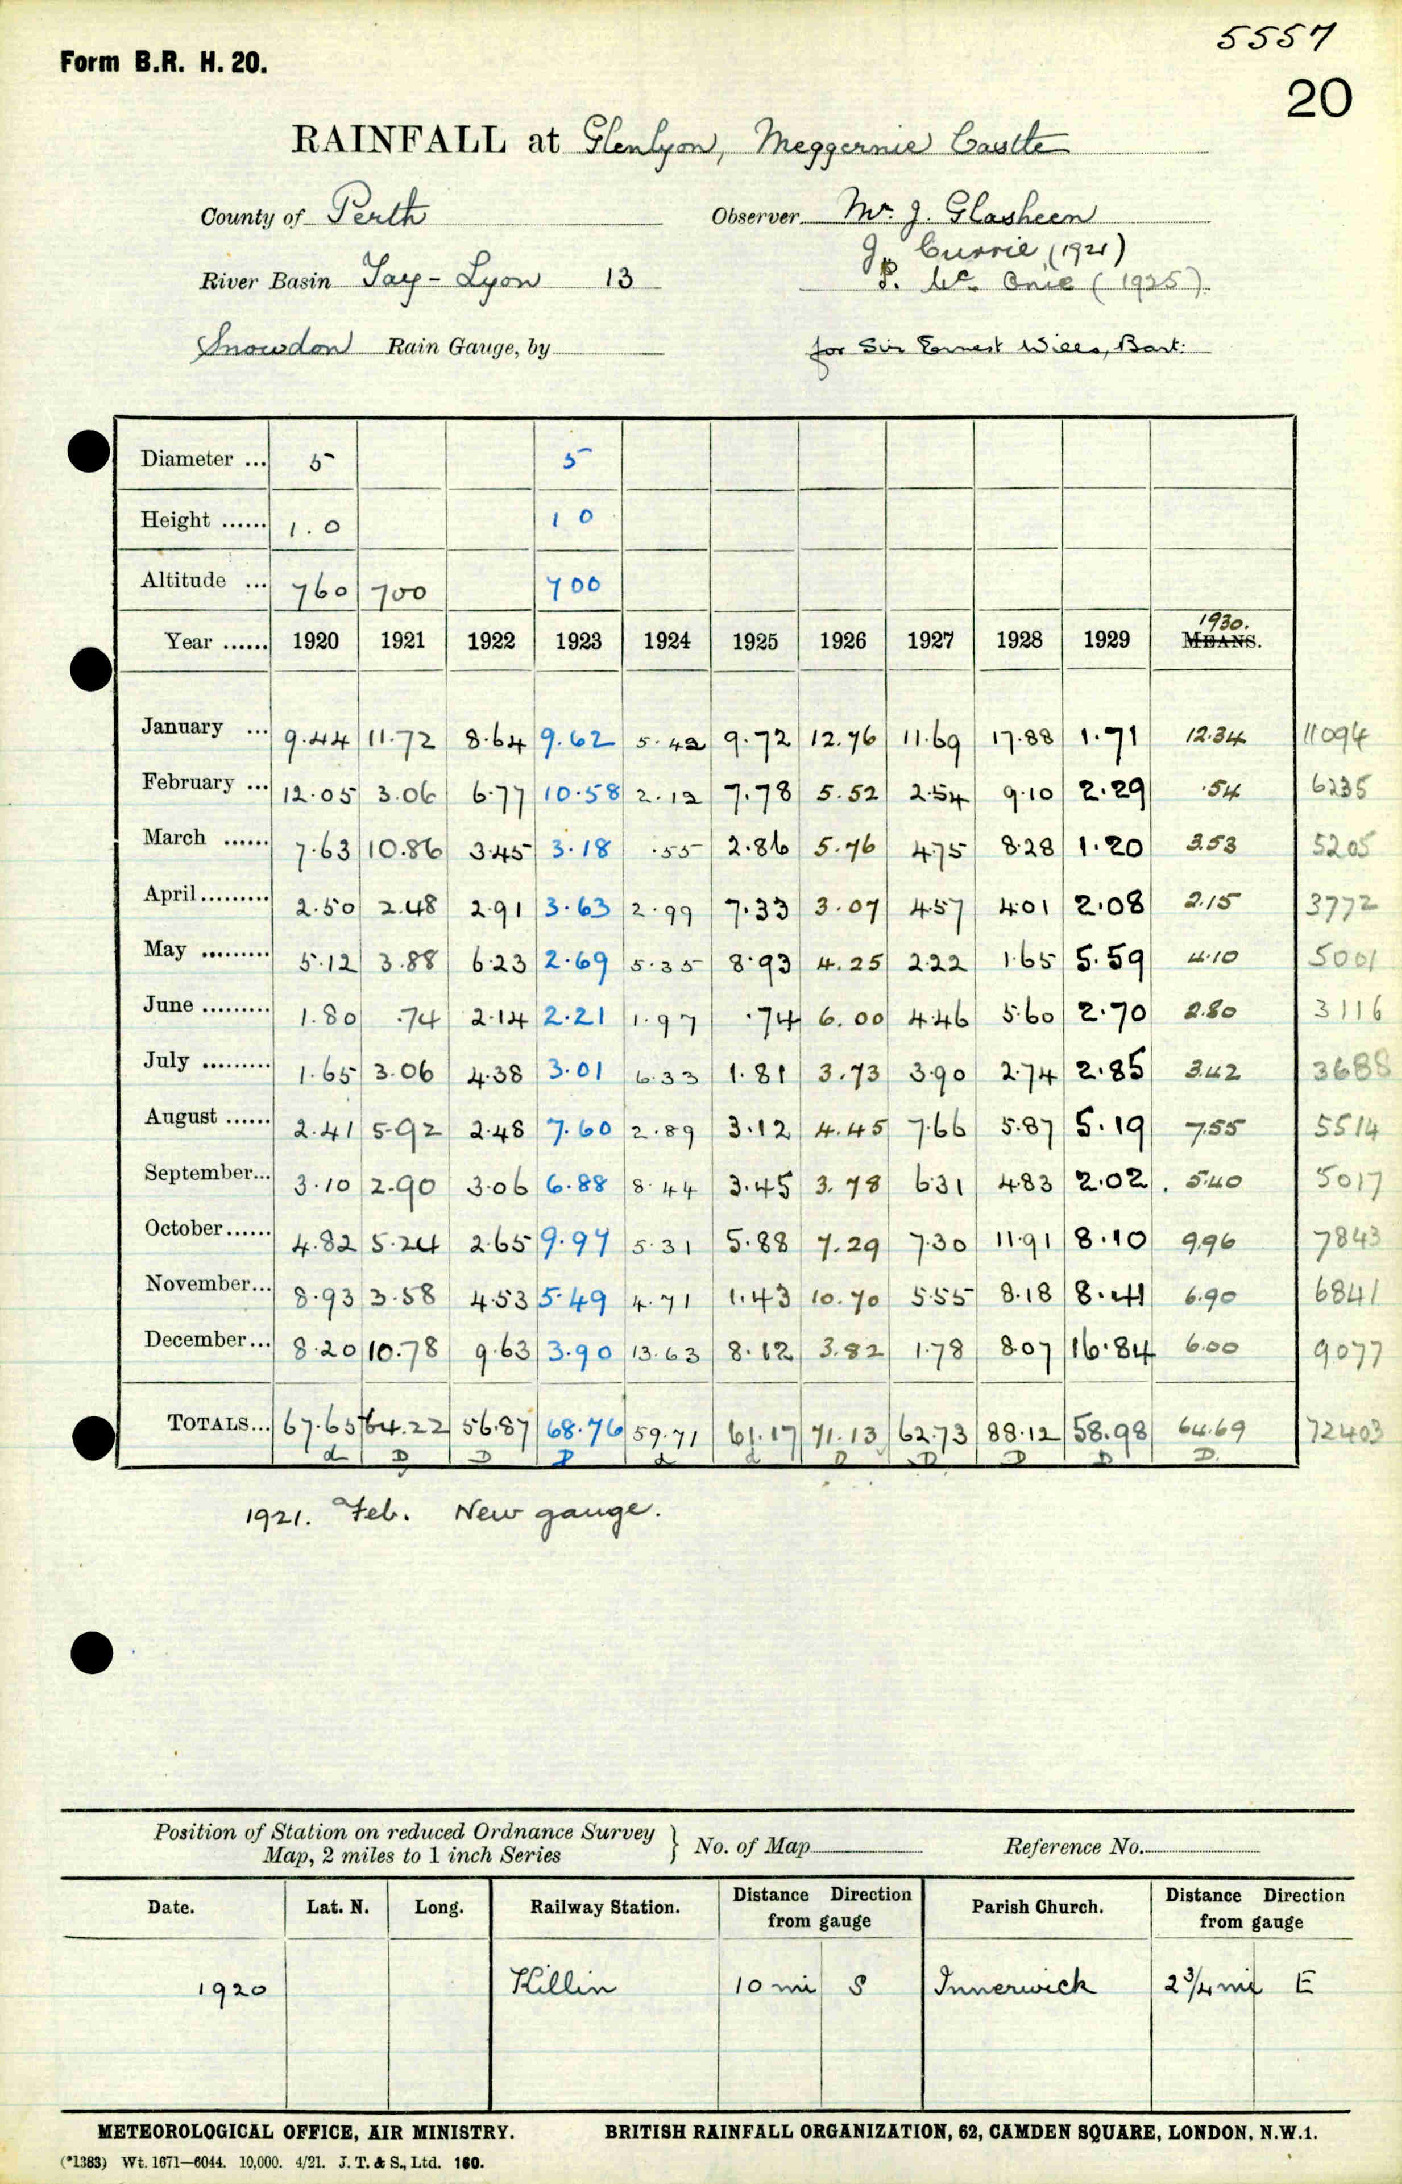 5557
Form B.R. H. 20.
20
RAINFALL at Glenlyon, Meggernie Castle
County of Perth Observer Mr. J. Glasheen
J. Currie (1921)
River Basin Tay - Lyon 13 P. Mc Onie (1925)
Snowdon Rain Gauge, by for Sir Ernest Wills, Bart.
Diameter ... 5 5
Height ...... 1.0 1 0
Altitude ... 760 700 700
1930.
Year ...... 1920 1921 1922 1923 1924 1925 1926 1927 1928 1929 MEANS.
January ... 9.44 11.72 8.64 9.62 5.42 9.72 12.76 11.69 17.88 1.71 12.34 11094
February ... 12.05 3.06 6.77 10.58 2.12 7.78 5.52 2.54 9.10 2.29 .54 6235
March ...... 7.63 10.86 3.45 3.18 .55 2.86 5.76 4.75 8.28 1.20 3.53 5205
April......... 2.50 2.48 2.91 3.63 2.99 7.33 3.07 4.57 4.01 2.08 2.15 3772
May ......... 5.12 3.88 6.23 2.69 5.35 8.93 4.25 2.22 1.65 5.59 4.10 5001
June ......... 1.80 .74 2.14 2.21 1.97 .74 6.00 4.46 5.60 2.70 2.80 3116
July ......... 1.65 3.06 4.38 3.01 6.33 1.81 3.73 3.90 2.74 2.85 3.42 3688
August ...... 2.41 5.92 2.48 7.60 2.89 3.12 4.45 7.66 5.87 5.19 7.55 5514
September... 3.10 2.90 3.06 6.88 8.44 3.45 3.78 6.31 4.83 2.02 5.40 5017
October...... 4.82 5.24 2.65 9.97 5.31 5.88 7.29 7.30 11.91 8.10 9.96 7843
November... 8.93 3.58 4.53 5.49 4.71 1.43 10.70 5.55 8.18 8.41 6.90 6841
December... 8.20 10.78 9.63 3.90 13.63 8.12 3.82 1.78 8.07 16.84 6.00 9077
TOTALS... 67.65 64.22 56.87 68.76 59.71 61.17 71.13 62.73 88.12 58.98 64.69 72403
d D D D d d D D D D D.
1921. Feb. New gauge.
Position of Station on reduced Ordnance Survey
Map, 2 miles to 1 inch Series } No. of Map Reference No.
Date. Lat. N. Long. Railway Station. Distance Direction from gauge Parish Church. Distance Direction from gauge
1920 Killin 10 mi S Innerwick 2 3/4 mi E
METEOROLOGICAL OFFICE, AIR MINISTRY. BRITISH RAINFALL ORGANIZATION, 62, CAMDEN SQUARE, LONDON, N.W.1.
(*1383) Wt. 1671—6044. 10,000. 4/21. J. T. & S., Ltd. 160.